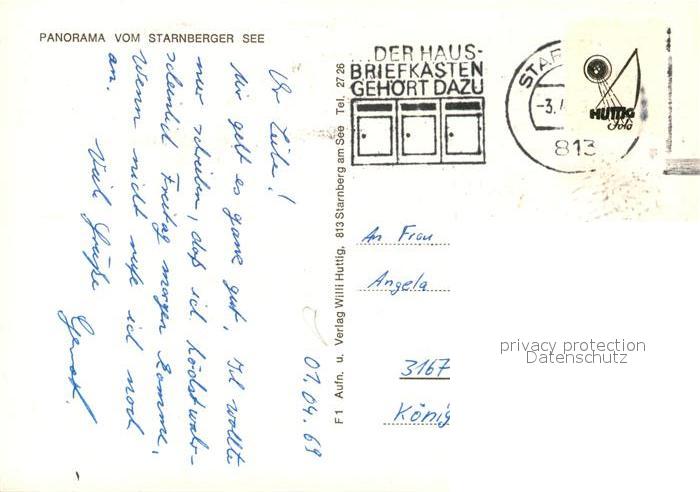 PANORAMA VOM STARNBERGER SEE
Ihr Lieben!
Mir geht es ganz gut, Ich wollte
nur schreiben, daß ich höchstwahr-
scheinlich Freitag morgen komme,
wenn nicht rufe ich noch
an.
Viele Grüße
01.04.69
F1 Aufn. u. Verlag Willi Huttig, 813 Starnberg am See Tel. 27 26
...DER HAUS-
BRIEFKASTEN
GEHÖRT DAZU
STAR
-3.
813
HUTTIG
Foto
An Frau
Angela
3167
König
privacy protection
Datenschutz